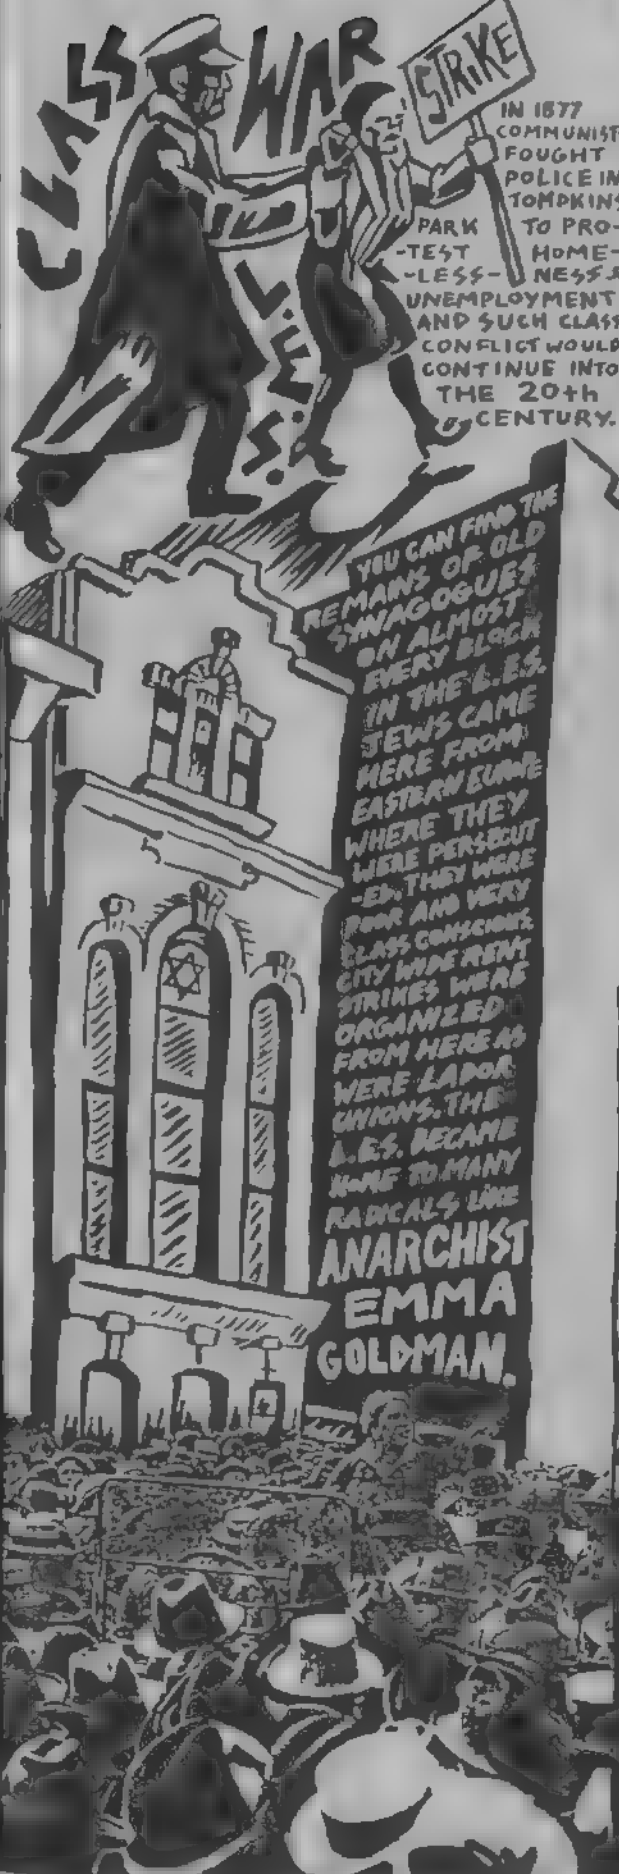 CLASS WAR
STRIKE
IN 1877
COMMUNIST
FOUGHT
POLICE IN
TOMPKINS
PARK TO PRO-
-TEST HOME-
-LESS- NESS &
UNEMPLOYMENT
AND SUCH CLASS
CONFLICT WOULD
CONTINUE INTO
THE 20th
CENTURY.
L.E.S.
YOU CAN FIND THE
REMAINS OF OLD
SYNAGOGUES
ON ALMOST
EVERY BLOCK
IN THE L.E.S.
JEWS CAME
HERE FROM
EASTERN EUROPE
WHERE THEY
WERE PERSECUT
-ED. THEY WERE
POOR AND VERY
CLASS CONSCIOUS
CITY WIDE RENT
STRIKES WERE
ORGANIZED
FROM HERE AS
WERE LABOR
UNIONS. THE
L.E.S. BECAME
HOME TO MANY
RADICALS LIKE
ANARCHIST
EMMA
GOLDMAN.